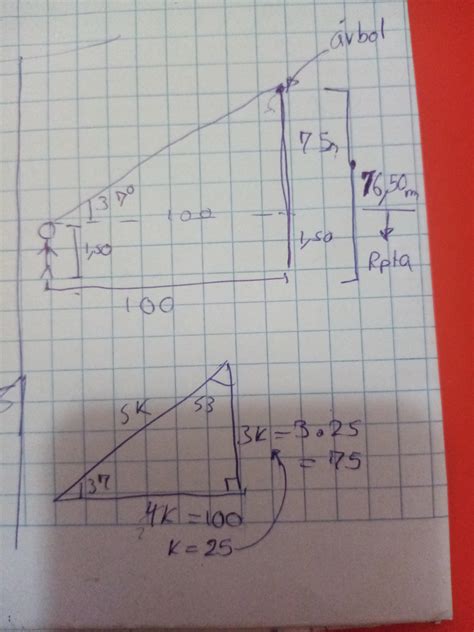 árbol
75m
37°
100
76,50m
1,50
1,50
Rpta
100
5K
53
3K = 3.25
= 75
37
4K = 100
K = 25